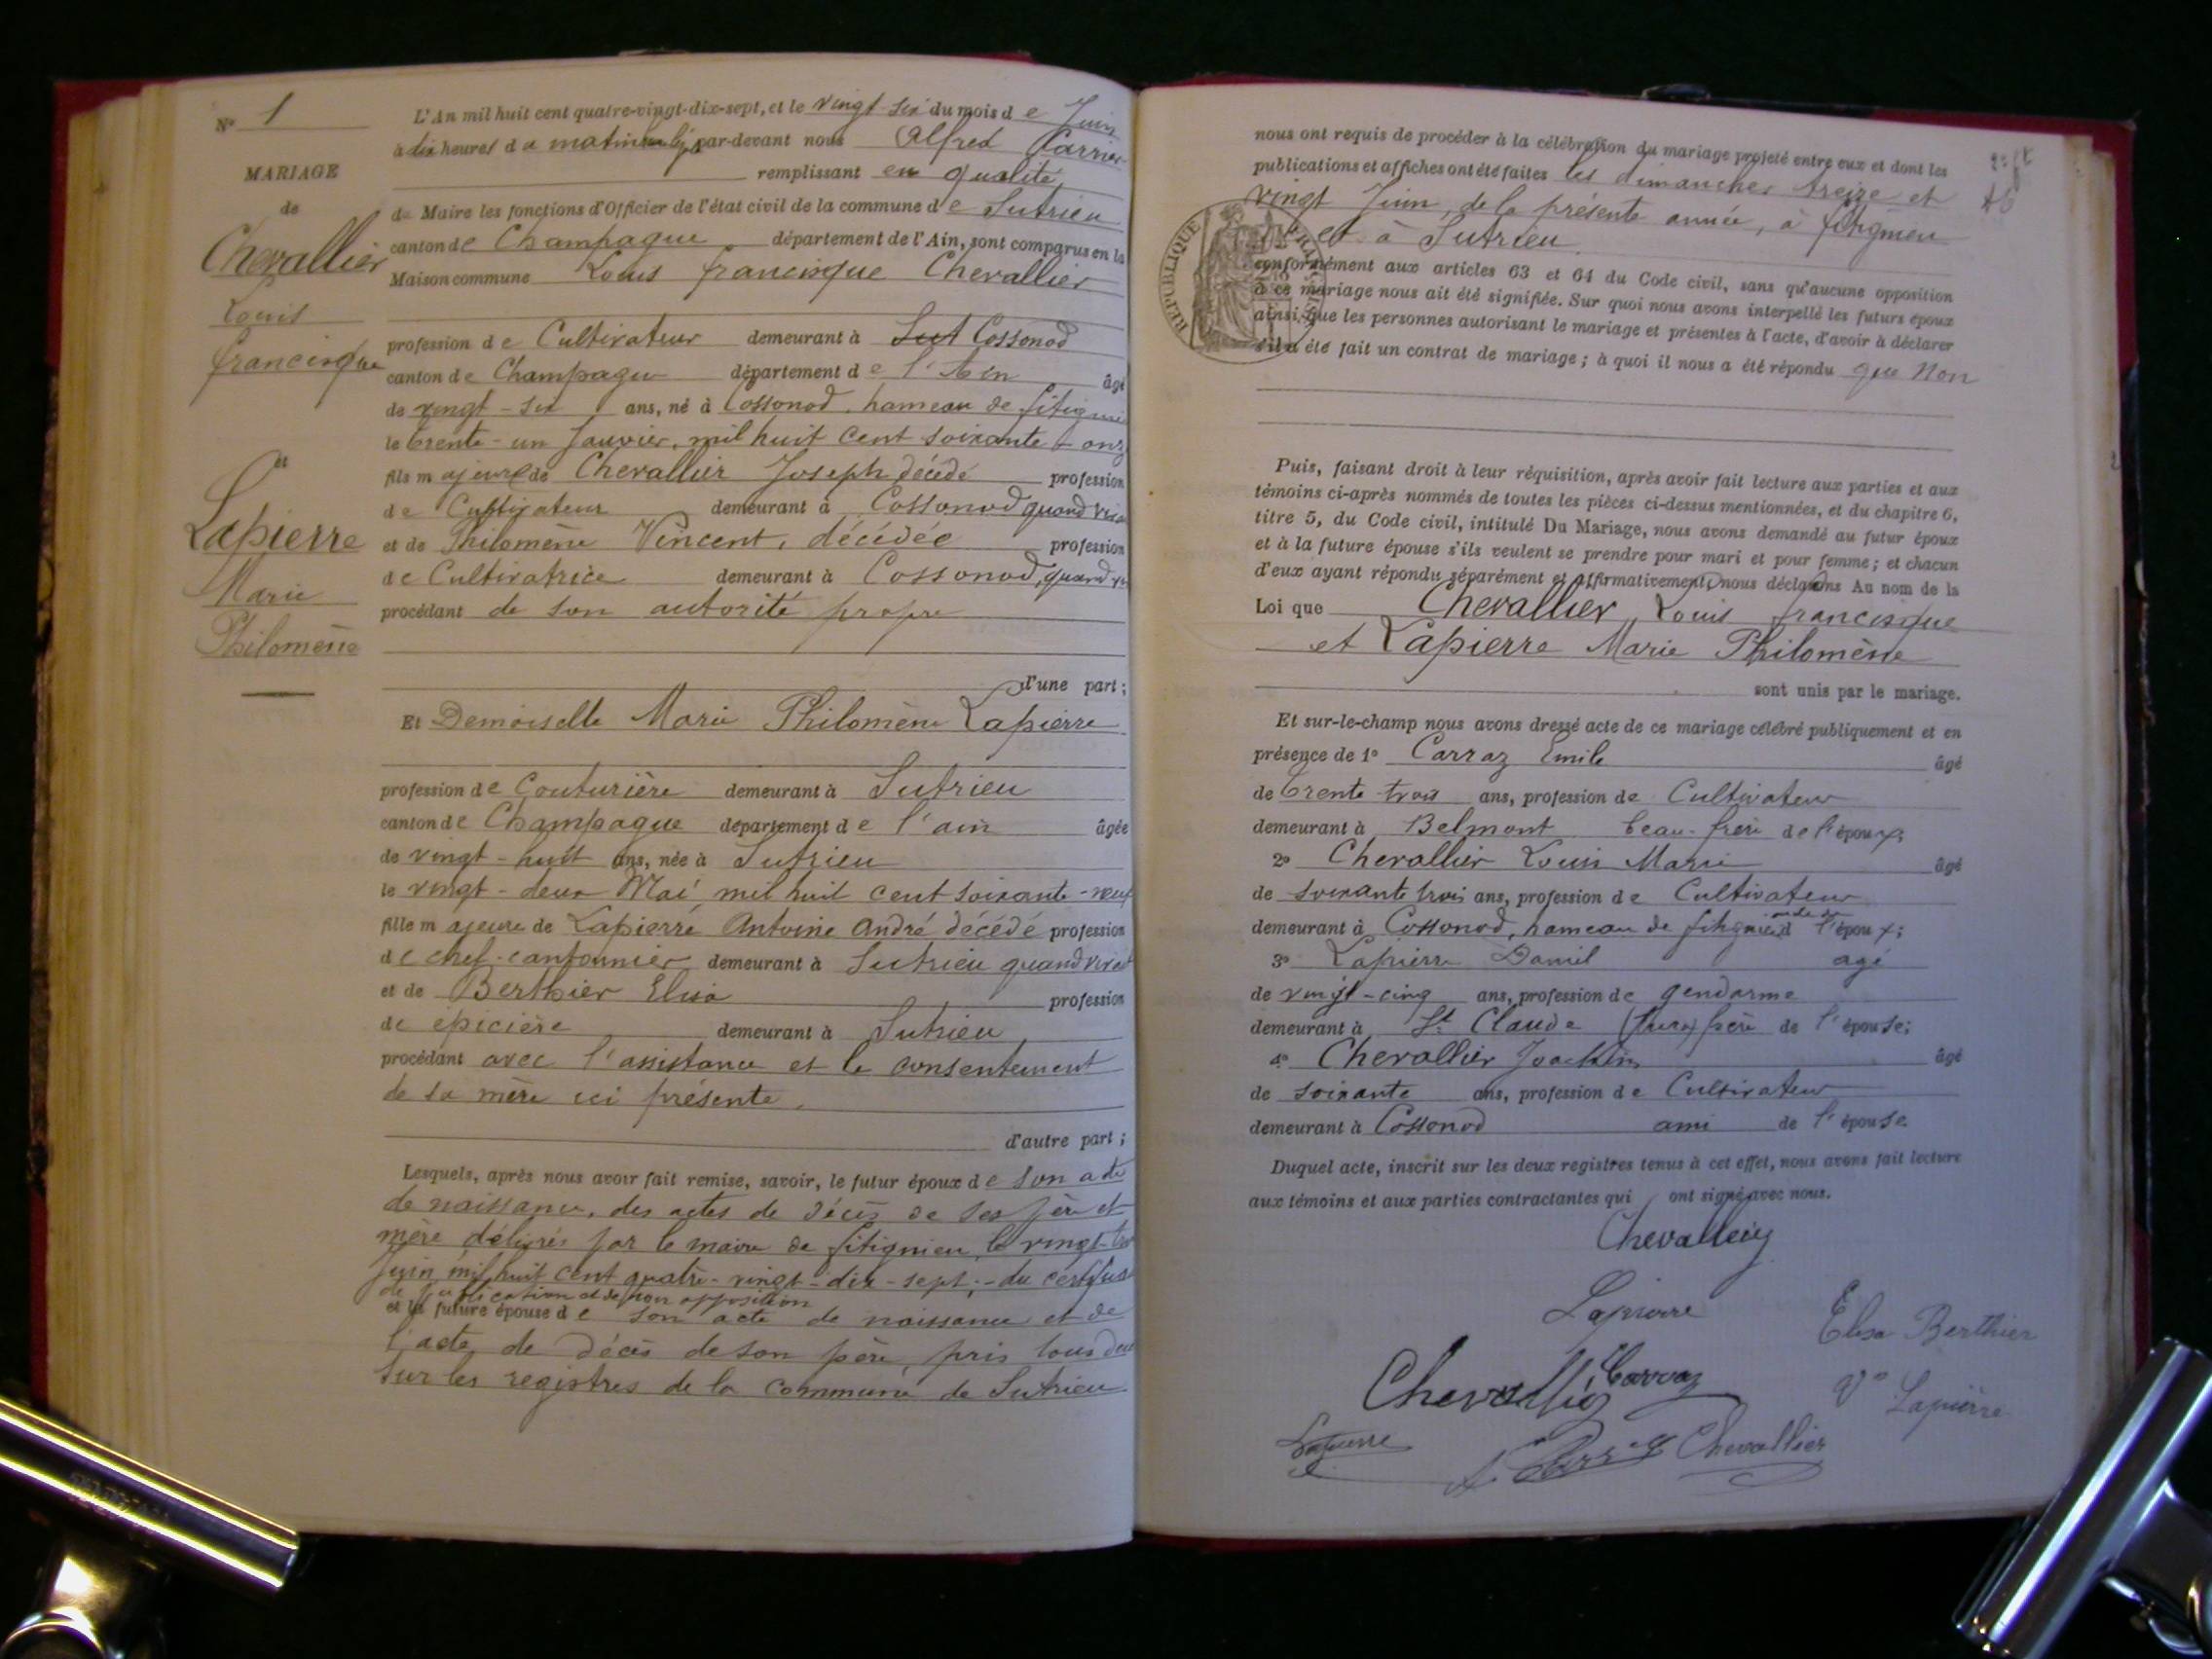 N° 1
MARIAGE
de
Chevallier
Louis
francisque
et
Lapierre
Marie
Philomène
L'An mil huit cent quatre-vingt-dix-sept, et le vingt-six du mois de Juin
à dix heures du matin par-devant nous Alfred
remplissant en qualité
de Maire les fonctions d'Officier de l'état civil de la commune de Sutrieu
canton de Champagne département de l'Ain, sont comparus en la
Maison commune Louis francisque Chevallier
profession de Cultivateur demeurant à Sut Cossonod
canton de Champagne département de l'Ain âgé
de vingt-six ans, né à Cossonod, hameau de fitignieu
le trente-un Janvier, mil huit cent soixante-onze
fils majeur de Chevallier Joseph décédé profession
de Cultivateur demeurant à Cossonod quand vivait
et de Philomène Vincent, décédée profession
de Cultivatrice demeurant à Cossonod, quand
procédant de son autorité propre
d'une part;
Et Demoiselle Marie Philomène Lapierre
profession de Couturière demeurant à Sutrieu
canton de Champagne département de l'ain âgée
de vingt-huit ans, née à Sutrieu
le vingt-deux Mai mil huit cent soixante-neuf
fille majeure de Lapierre Antoine André décédé profession
de chef-cantonnier demeurant à Sutrieu quand vivait
et de Berthier Elisa profession
de épicière demeurant à Sutrieu
procédant avec l'assistance et le consentement
de sa mère ici présente.
d'autre part;
Lesquels, après nous avoir fait remise, savoir, le futur époux de son acte
de naissance, des actes de décès de ses père et
mère délivrés par le maire de fitignieu, le vingt-trois
Juin mil huit cent quatre-vingt-dix-sept; du certificat
de publication et de non opposition
et la future épouse de son acte de naissance et de
l'acte de décès de son père, pris tous deux
sur les registres de la commune de Sutrieu
nous ont requis de procéder à la célébration du mariage projeté entre eux et dont les
publications et affiches ont été faites les dimanches treize et
vingt Juin, de la présente année, à fitignieu
et à Sutrieu
RÉPUBLIQUE FRANÇAISE
conformément aux articles 63 et 64 du Code civil, sans qu'aucune opposition
à ce mariage nous ait été signifiée. Sur quoi nous avons interpellé les futurs époux
ainsi que les personnes autorisant le mariage et présentes à l'acte, d'avoir à déclarer
s'il a été fait un contrat de mariage; à quoi il nous a été répondu que Non
Puis, faisant droit à leur réquisition, après avoir fait lecture aux parties et aux
témoins ci-après nommés de toutes les pièces ci-dessus mentionnées, et du chapitre 6,
titre 5, du Code civil, intitulé Du Mariage, nous avons demandé au futur époux
et à la future épouse s'ils veulent se prendre pour mari et pour femme; et chacun
d'eux ayant répondu séparément et affirmativement, nous déclarons Au nom de la
Loi que Chevallier Louis francisque
et Lapierre Marie Philomène
sont unis par le mariage.
Et sur-le-champ nous avons dressé acte de ce mariage célébré publiquement et en
présence de 1° Carraz Emile âgé
de trente-trois ans, profession de Cultivateur
demeurant à Belmont beau-frère de l'époux;
2° Chevallier Louis Marie âgé
de soixante trois ans, profession de Cultivateur
demeurant à Cossonod, hameau de fitignieu oncle de l'époux;
3° Lapierre Daniel agé
de vingt-cinq ans, profession de gendarme
demeurant à St. Claude (Jura) frère de l'épouse;
4° Chevallier Joachim âgé
de soixante ans, profession de Cultivateur
demeurant à Cossonod ami de l'épouse
Duquel acte, inscrit sur les deux registres tenus à cet effet, nous avons fait lecture
aux témoins et aux parties contractantes qui ont signé avec nous.
Chevallier
Lapierre
Elisa Berthier
Chevallier Carraz
Ve Lapierre
Lapierre
Chevallier